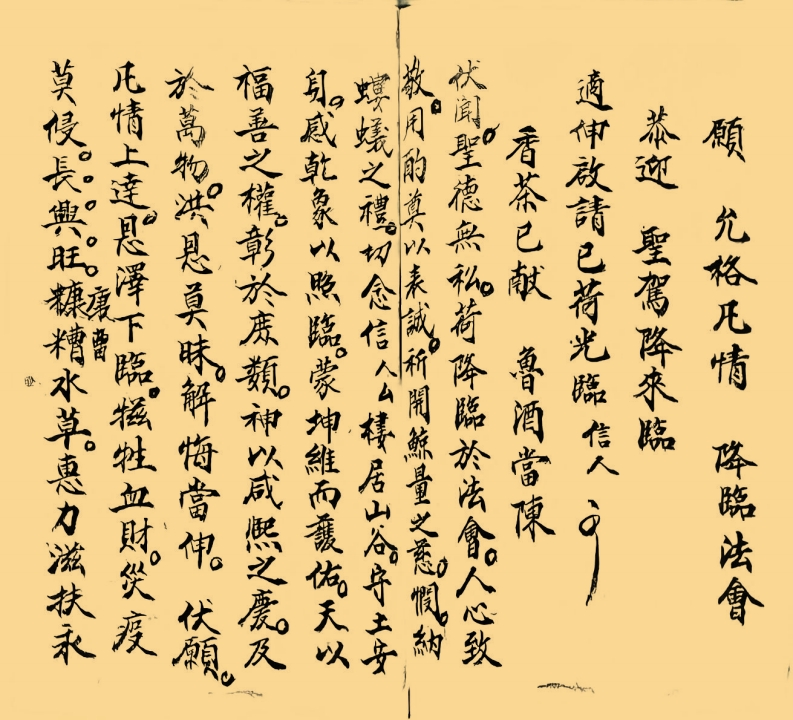 願 允格凡情 降臨法會
恭迎 聖駕降來臨
適伸啟請已荷光臨信人
香茶已献 魯酒當陳
伏聞聖德無私。荷降臨於法會。人心致
敬。用酌奠以表誠。祈開鯨量之慈。憫納
螻蟻之禮。切念信人厶棲居山谷。守土安
身。感乾象以照臨。蒙坤維而護佑。天以
福善之權。彰於庶類。神以咸熙之慶。及
於萬物。洪恩莫昧。解悔當伸。 伏願。
凡情上達。恩澤下臨。犠牲血財。災疫
莫侵。長。興。旺。糠糟唐曹水草。惠力滋扶永